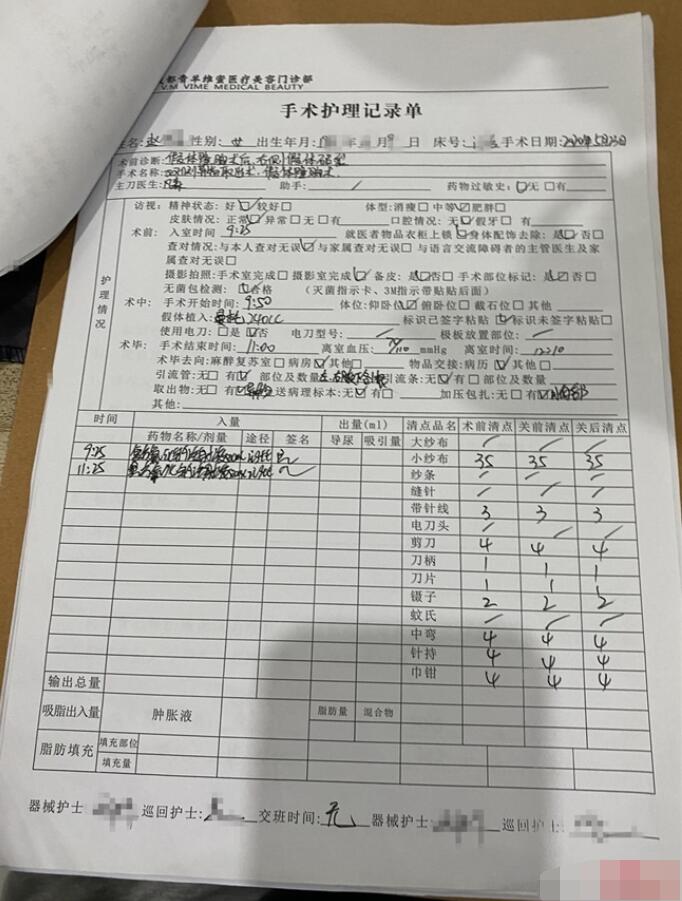 都青羊维蜜医疗美容门诊部
V.M VIME MEDICAL BEAUTY
手术护理记录单
姓名: 赵 性别: 女 出生年月: 年 月 日 床号: 手术日期: 2020年5月23日
术前诊断: 假体隆胸术后,右侧假体破裂
手术名称: 取出术,假体隆胸术
主刀医生: 助手: / 药物过敏史: ☑无 □有
护理情况
访视: 精神状态: 好☑ 较好□ 体型: 消瘦□ 中等☑ 肥胖□
皮肤情况: 正常☑ 异常□ 无□ 有 口腔情况: 无☑ 假牙□ 有
术前: 入室时间 9:25 就医者物品衣柜上锁☑ 身体配饰去除: 是☑ 否□
查对情况: 与本人查对无误☑ 与家属查对无误□ 与语言交流障碍者的主管医生及家
属查对无误□
摄影拍照: 手术室完成□ 摄影室完成☑ 备皮: 是☑否□ 手术部位标记: 是☑ 否□
无菌包检测: ☑合格 (灭菌指示卡、3M指示带贴贴后面)
术中: 手术开始时间: 9:50 体位: 仰卧位☑ 俯卧位□ 截石位□ 其他
假体植入: 曼托 240CC 标识已签字粘贴☑ 标识未签字粘贴□
使用电刀: □是 ☑否 电刀型号: / 极板放置部位: /
术毕: 手术结束时间: 11:00 离室血压: /110 mmHg 离室时间:
术毕去向: 麻醉复苏室□ 病房☑ 其他 物品交接: 病历☑ 其他
引流管: 无□ 有☑ 部位及数量 引流条: 无☑ 有□ 部位及数量
取出物: 无□ 有☑ 送病理标本: 无☑ 有□ 加压包扎: 无□ 有☑ 胸部
其他:
时间 入量 出量(ml) 清点品名 术前清点 关前清点 关后清点
药物名称/剂量 途径 签名 导尿 吸引量
大纱布 / / /
9:25 小纱布 35 35 35
11:25 纱条 / / /
缝针 / / /
带针线 3 3 3
电刀头 / / /
剪刀 4 4 4
刀柄 1 1 1
刀片 1 1 1
镊子 2 2 2
蚊氏 / / /
中弯 4 4 4
针持 4 4 4
输出总量 巾钳 4 4 4
吸脂出入量 肿胀液 脂肪量 混合物
脂肪填充 填充部位
填充量
器械护士 巡回护士: 交班时间: 无 器械护士: 巡回护士: